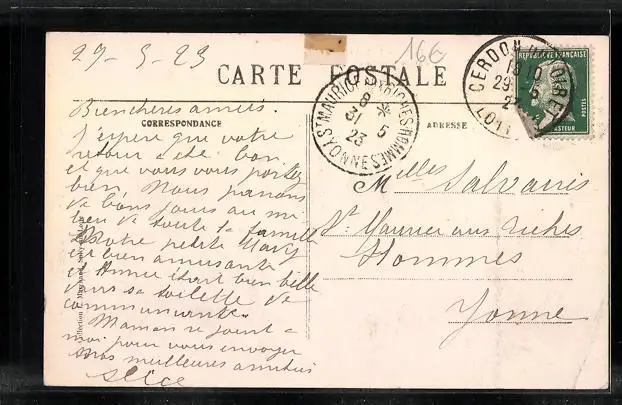 29-5-23
16€
CARTE POSTALE
CORRESPONDANCE
ADRESSE
Bien chères amies.
J'espère que votre
retour a été bon
et que vous vous portez
bien, Nous passons
de bons jours au mi
lieu de toute la famille
Notre petite
est bien amusante
et était bien belle
dans sa toilette de
communiante.
Maman se joint a
moi pour vous envoyer
nos meilleures amitiés
Alice
Melles Salvanis
St Maurice aux riches
Hommes
Yonne
ST MAURICE-AUX-RICHES-HOMMES YONNE
8
31 5
23
CERDON-DU-LOIRET
1610
29 5
23
LOIRET
REPUBLIQUE FRANÇAISE
POSTES
PASTEUR
Collection